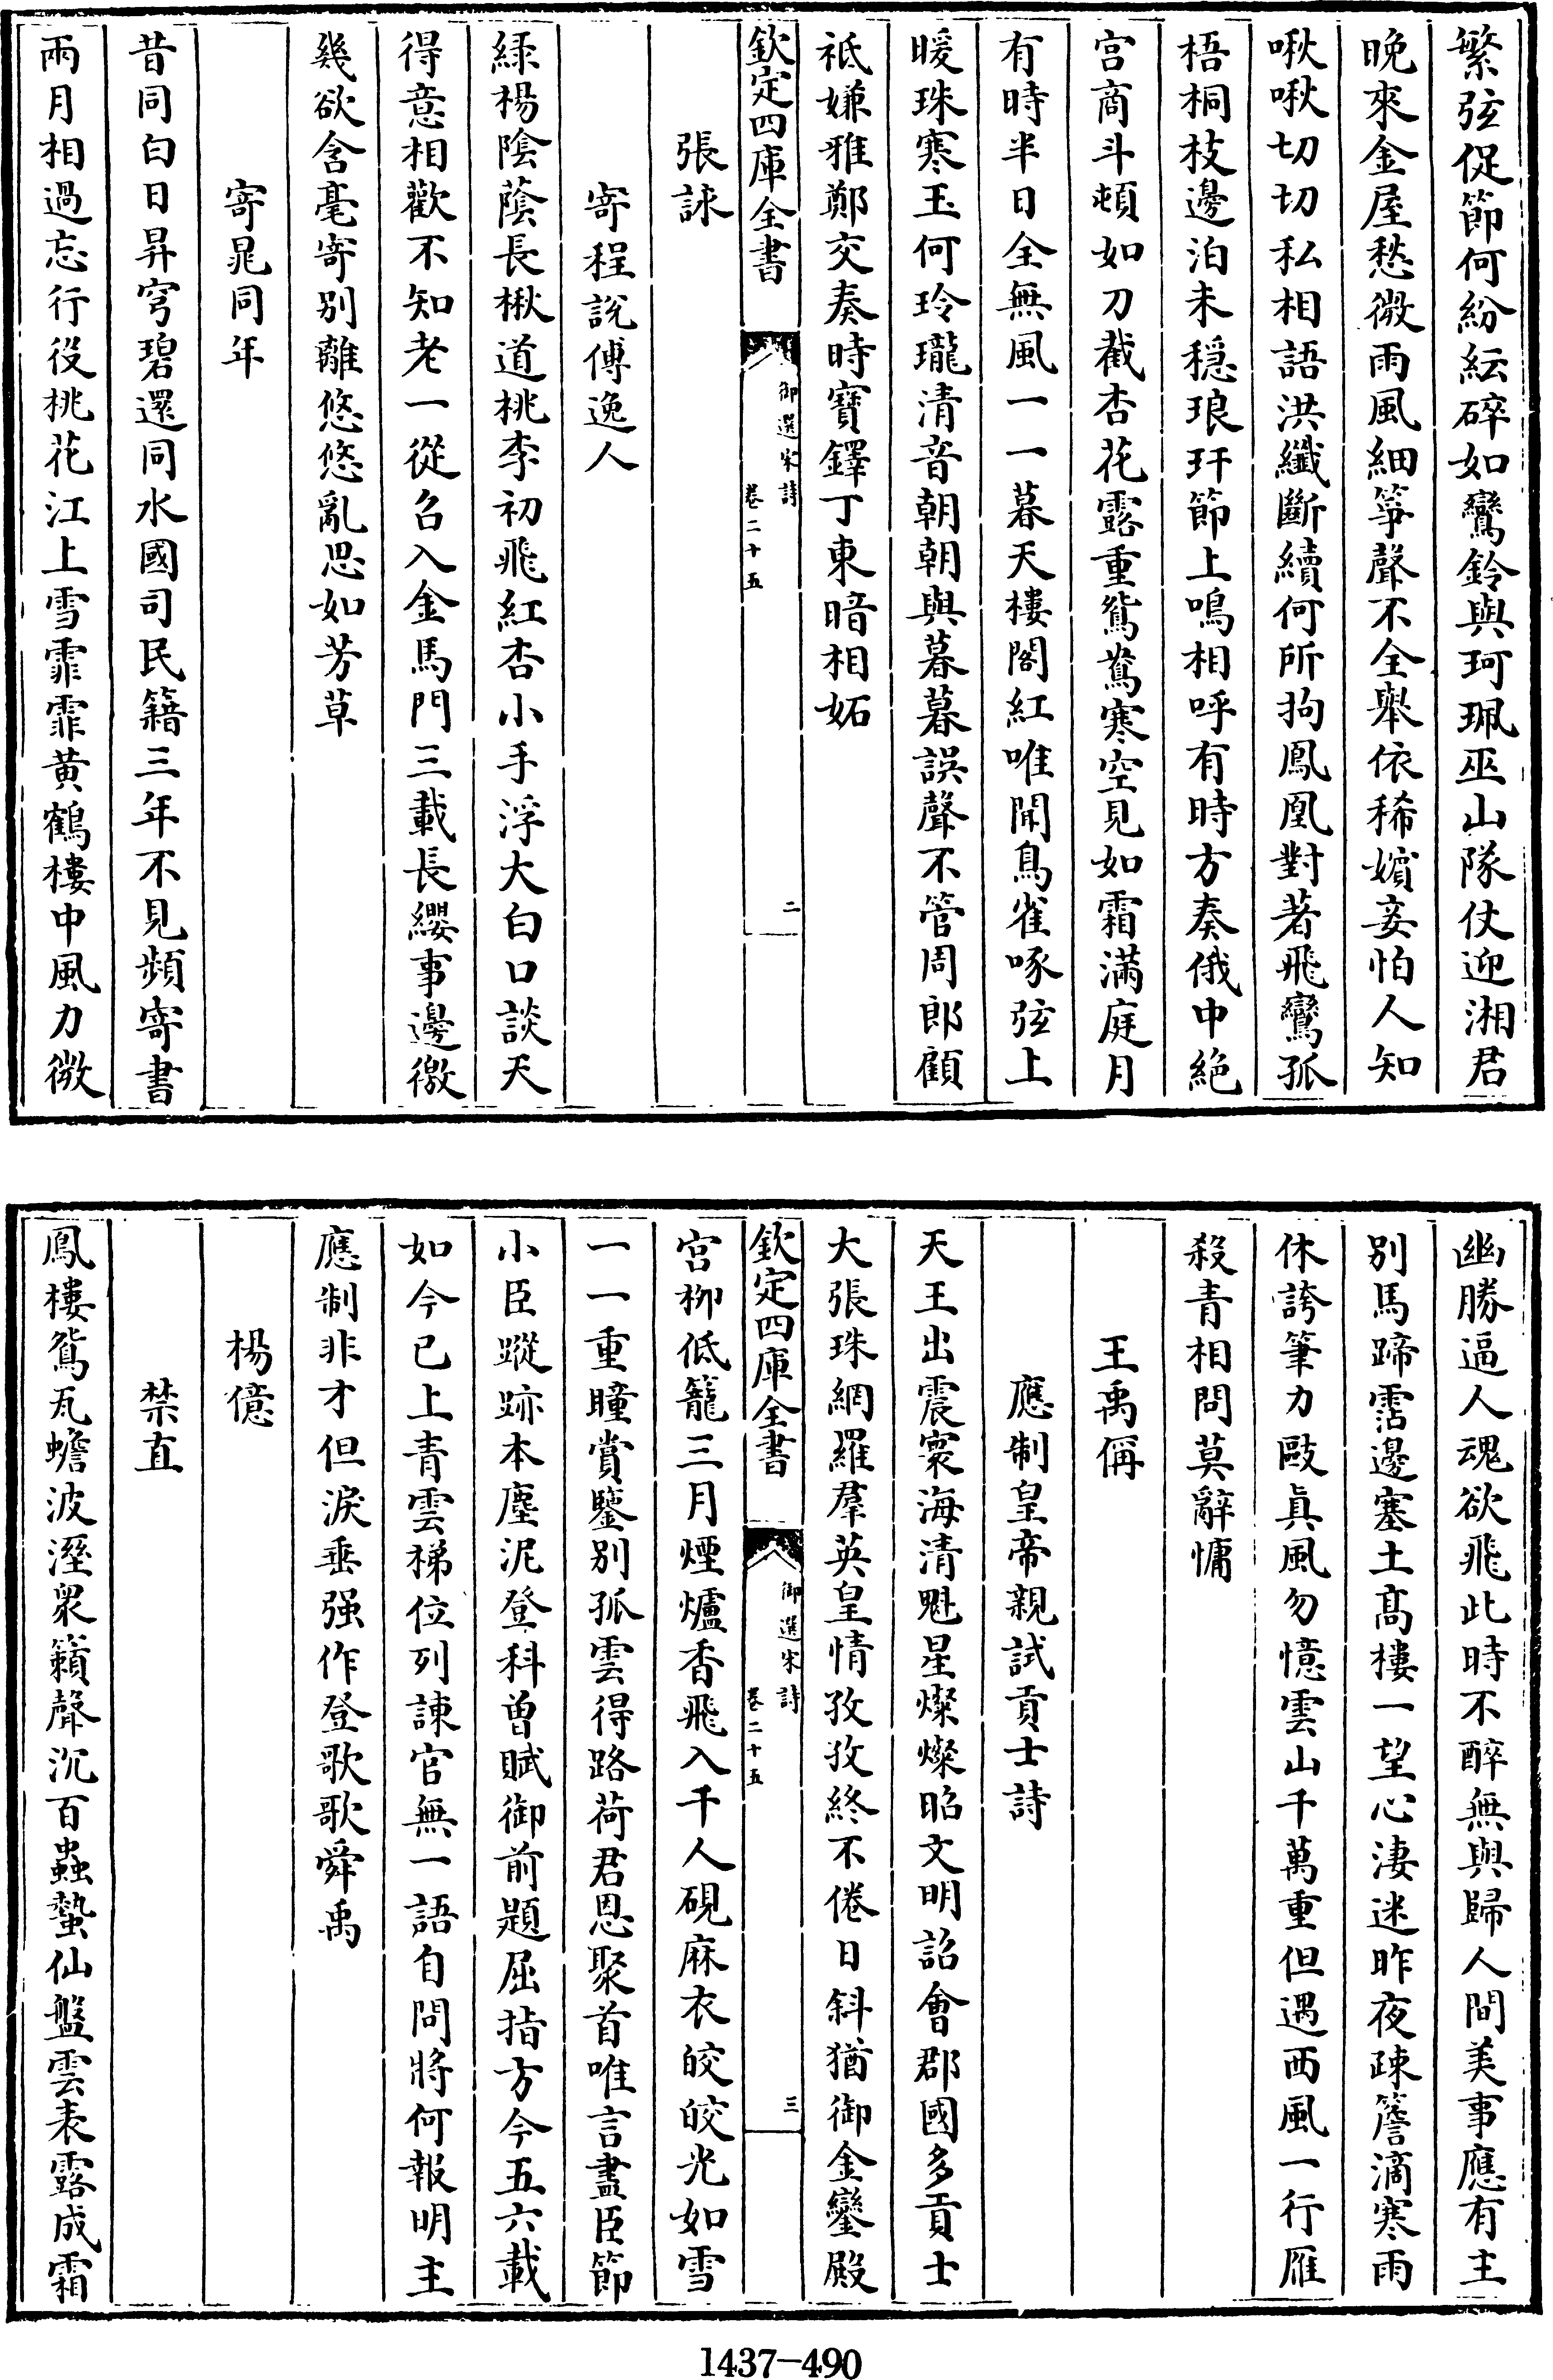 繁弦促節何紛紜碎如鸞鈴與珂珮巫山隊仗迎湘君
晚來金屋愁微雨風細箏聲不全舉依稀嬪妾怕人知
啾啾切切私相語洪纖斷續何所拘鳳凰對著飛鸞孤
梧桐枝邊泊未穩琅玕節上鳴相呼有時方奏俄中絶
宫商斗頓如刀截杏花露重鴛鴦寒空見如霜滿庭月
有時半日全無風一一暮天樓閣紅唯聞鳥雀啄弦上
暖珠寒玉何玲瓏清音朝朝與暮暮誤聲不管周郎顧
祗嫌雅鄭交奏時寶鐸丁東暗相妬
欽定四庫全書
御選宋詩
卷二十五
二
張詠
寄程説傅逸人
緑楊陰蔭長楸道桃李初飛紅杏小手浮大白口談天
得意相歡不知老一從召入金馬門三載長纓事邊徼
幾欲含毫寄别離悠悠亂思如芳草
寄晁同年
昔同白日昇穹碧還同水國司民籍三年不見頻寄書
兩月相過忘行役桃花江上雪霏霏黄鶴樓中風力微
幽勝逼人魂欲飛此時不醉無與歸人間美事應有主
别馬蹄霑邊塞土髙樓一望心淒迷昨夜疎簷滴寒雨
休誇筆力敺眞風勿憶雲山千萬重但遇西風一行雁
殺青相問莫辭慵
王禹偁
應制皇帝親試貢士詩
天王出震寰海清魁星燦燦昭文明詔會郡國多貢士
大張珠網羅羣英皇情孜孜終不倦日斜猶御金鑾殿
欽定四庫全書
御選宋詩
卷二十五
三
宫柳低籠三月煙爐香飛入千人硯麻衣皎皎光如雪
一一重瞳賞鑒别孤雲得路荷君恩聚首唯言盡臣節
小臣蹤跡本塵泥登科曽賦御前題屈指方今五六載
如今已上青雲梯位列諫官無一語自問將何報明主
應制非才但淚垂强作登歌歌舜禹
楊億
禁直
鳳樓鴛瓦蟾波溼衆籟聲沉百蟲蟄仙盤雲表露成霜
1437-490